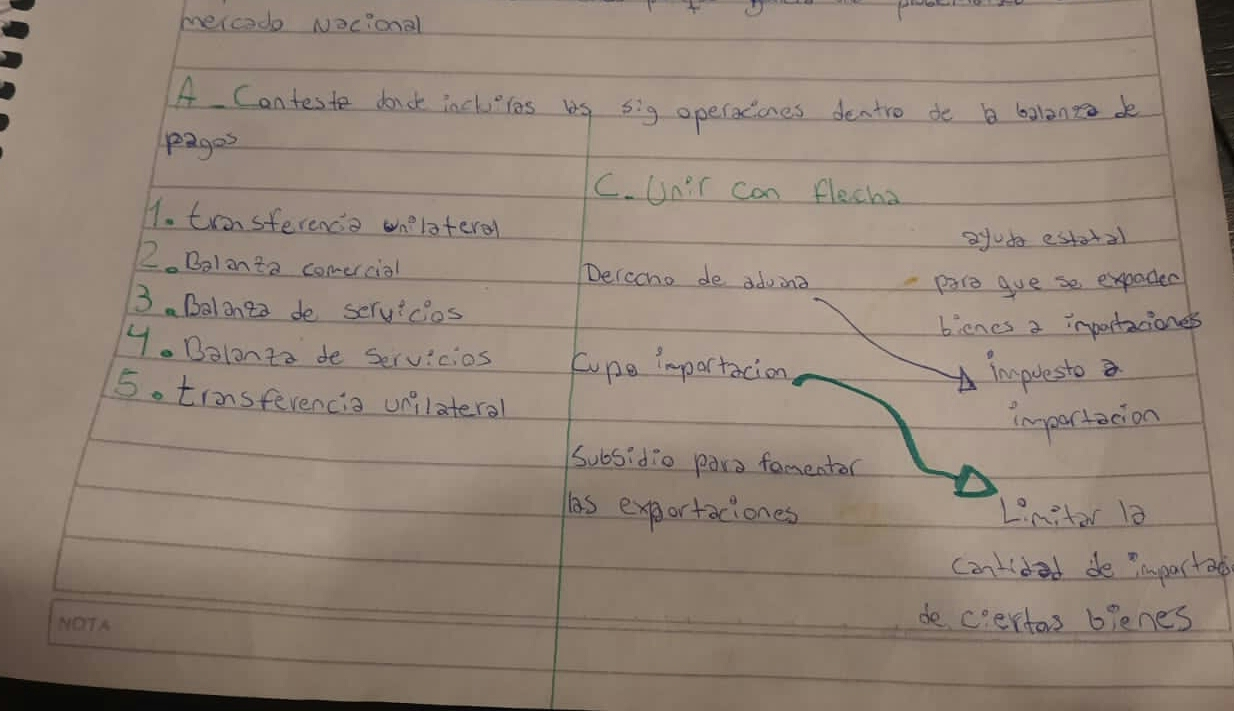 mercado Nacional
A - Conteste donde incluiras las sig operaciones dentro de la balanza de
pagos
1. transferencia unilateral
2. Balanza comercial
3. Balanza de servicios
4. Balanza de Servicios
5. transferencia unilateral
C. Unir con flecha
Derecho de aduana
Cupo importacion
Subsidio para fomentar
las exportaciones
ayuda estatal
para que se expaden
bienes a importaciones
impuesto a
importacion
Limitar la
cantidad de importac
de ciertos bienes
NOTA